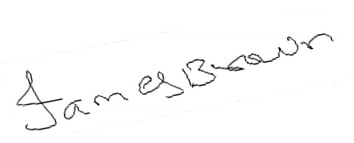 James Brown